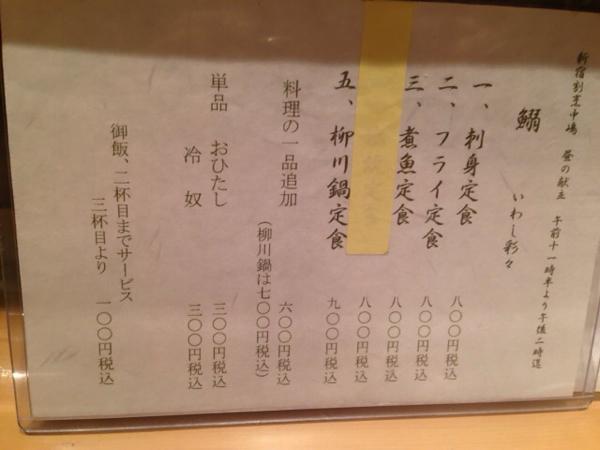 新宿割烹中嶋 昼の献立 午前十一時半より午後二時迄
鰯 いわし彩々
一、刺身定食 八〇〇円税込
二、フライ定食 八〇〇円税込
三、煮魚定食 八〇〇円税込
八〇〇円税込
五、柳川鍋定食 九〇〇円税込
料理の一品追加 六〇〇円税込
（柳川鍋は七〇〇円税込）
単品 おひたし 三〇〇円税込
冷奴 三〇〇円税込
御飯、二杯目までサービス
三杯目より 一〇〇円税込